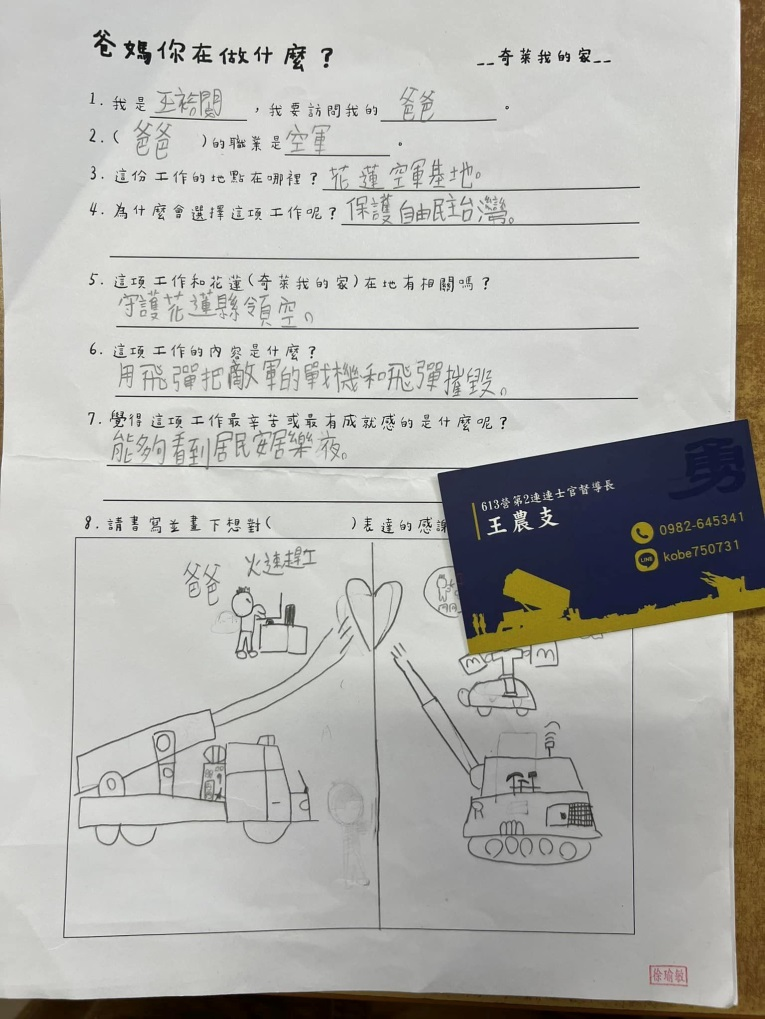 爸媽你在做什麼？
__奇萊我的家__
1. 我是王祫閎，我要訪問我的爸爸。
2. (爸爸)的職業是空軍。
3. 這份工作的地點在哪裡？花蓮空軍基地。
4. 為什麼會選擇這項工作呢？保護自由民主台灣。
5. 這項工作和花蓮(奇萊我的家)在地有相關嗎？
守護花蓮縣領空。
6. 這項工作的內容是什麼？
用飛彈把敵軍的戰機和飛彈摧毀。
7. 覺得這項工作最辛苦或最有成就感的是什麼呢？
能夠看到居民安居樂夜。
8. 請書寫並畫下想對(　　　)表達的感謝
勇
613營第2連連士官督導長
王農支
0982-645341
LINE
kobe750731
爸爸
火速趕工
R
徐瑜敏